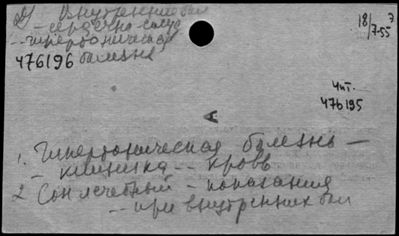 2) Внутренние бол
-- сердечно-сосуд
-- гипертоническая
476196 болезнь
18/7-55
Чит.
476195
А
1. Гипертоническая болезнь —
– клиника -- кровь
2 Сон лечебный – показания
-- при внутренних бол